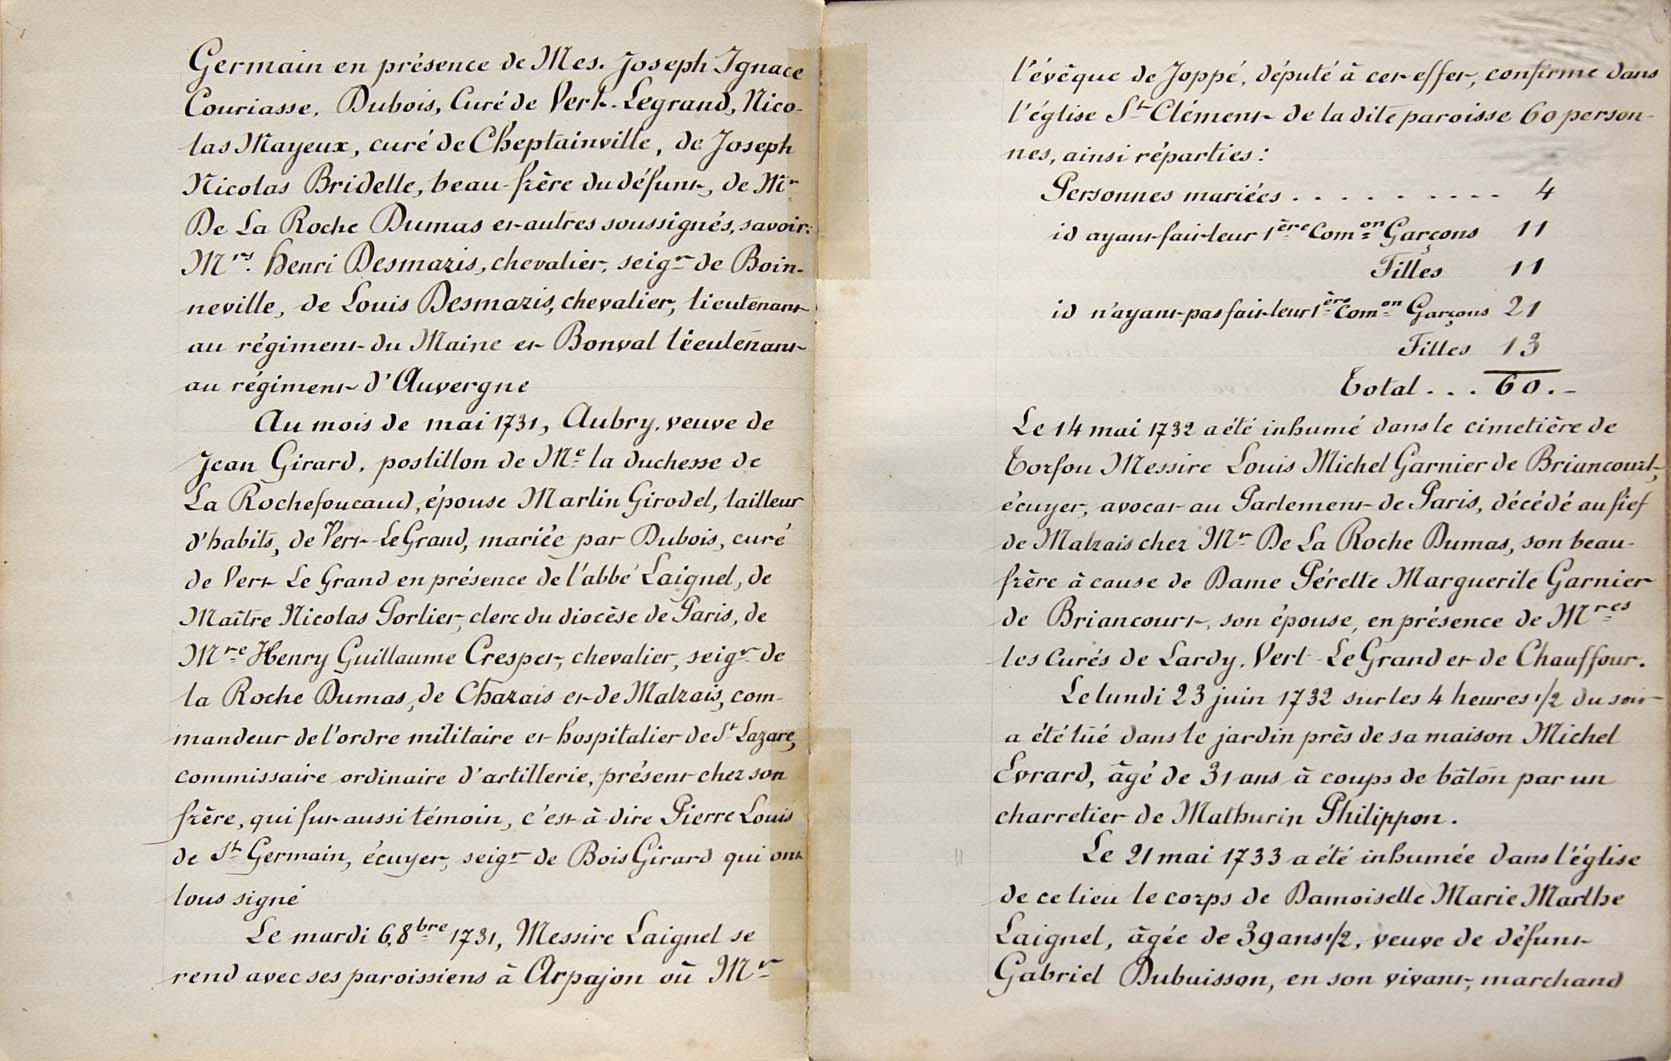 Germain en présence de Mes. Joseph Ignace
Couriasse, Dubois, Curé de Vert-Legrand, Nico-
las Mayeux, curé de Cheptainville, de Joseph
Nicolas Bridelle, beau-frère du défunt, de Mr
De La Roche Dumas et autres soussignés, savoir:
Mrs. Henri Desmazis, chevalier, seigr de Boin-
neville, de Louis Desmazis, chevalier, lieutenant
au régiment du Maine et Bonval lieutenant
au régiment d'Auvergne
Au mois de mai 1731, Aubry, veuve de
Jean Girard, postillon de Me la duchesse de
La Rochefoucaud, épouse Martin Girodet, tailleur
d'habits, de Vert-LeGrand, mariée par Dubois, curé
de Vert Le Grand en présence de l'abbé Laignel, de
Maître Nicolas Porlier, clerc du diocèse de Paris, de
Mre Henry Guillaume Crespet, chevalier, seigr de
la Roche Dumas, de Chazais et de Malzais, com-
mandeur de l'ordre militaire et hospitalier de St Lazare,
commissaire ordinaire d'artillerie, présent chez son
frère, qui fut aussi témoin, c'est-à-dire Pierre Louis
de St Germain, écuyer, seigr de Bois Girard qui ont
tous signé
Le mardi 6, 8bre 1731, Messire Laignel se
rend avec ses paroissiens à Arpajon où Mr
l'évêque de Joppé, député à cet effet, confirme dans
l'église St Clément de la dite paroisse 60 person-
nes, ainsi réparties:
Personnes mariées . . . . . . . . . 4
id ayant fait leur 1ère Comon Garçons 11
Filles 11
id n'ayant pas fait leur 1ère Comon Garçons 21
Filles 13
Total . . . 60.-
Le 14 mai 1732 a été inhumé dans le cimetière de
Torfou Messire Louis Michel Garnier de Briancourt,
écuyer, avocat au Parlement de Paris, décédé au fief
de Malzais chez Mr De La Roche Dumas, son beau-
frère à cause de Dame Pérette Marguerite Garnier
de Briancourt, son épouse, en présence de Mres
les Curés de Lardy, Vert-LeGrand et de Chauffour.
Le lundi 23 juin 1732 sur les 4 heures 1/2 du soir
a été tué dans le jardin près de sa maison Michel
Evrard, âgé de 31 ans à coups de bâton par un
charretier de Mathurin Philippon.
Le 21 mai 1733 a été inhumée dans l'église
de ce lieu le corps de Damoiselle Marie Marthe
Laignel, âgée de 39 ans 1/2, veuve de défunt
Gabriel Dubuisson, en son vivant, marchand